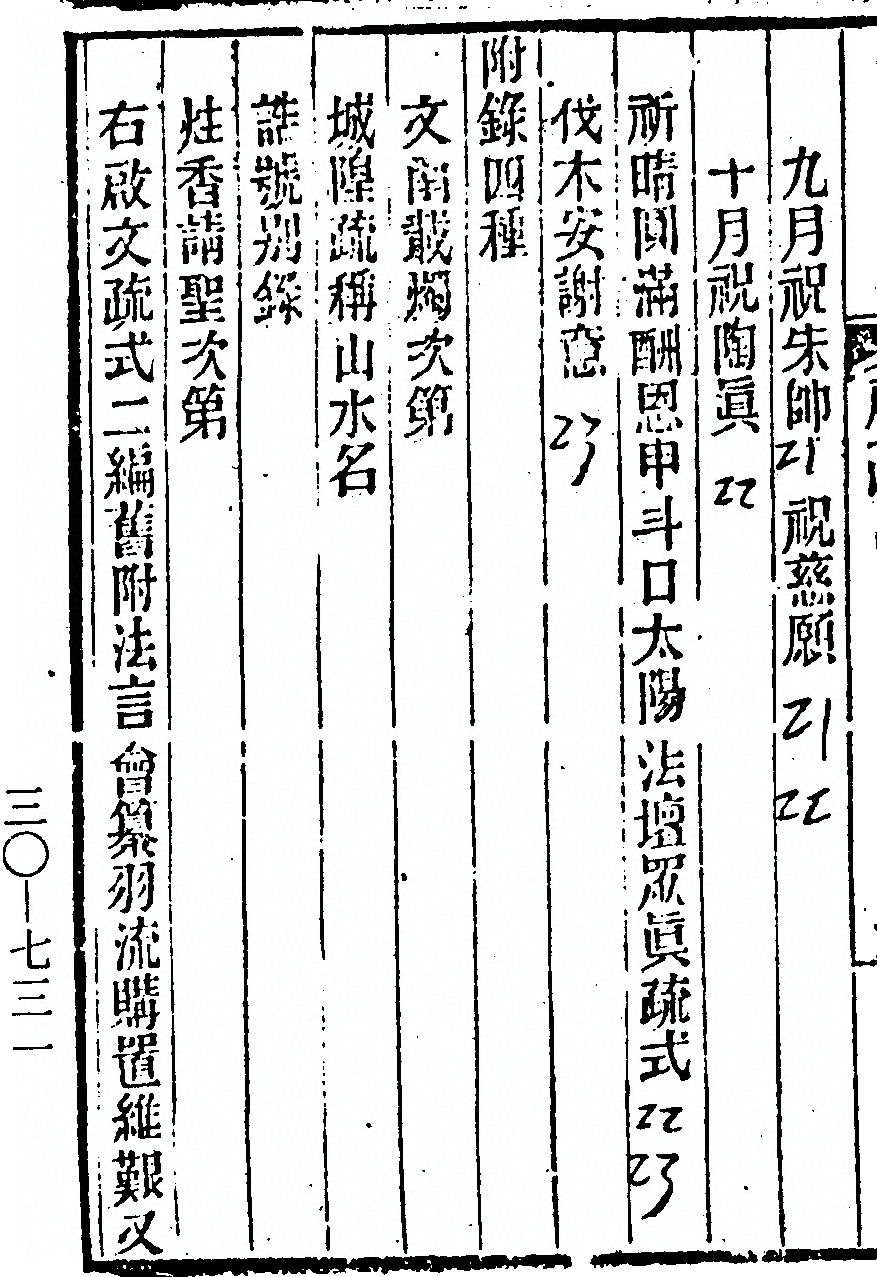 九月祝朱帥 21 祝慈願 21 22
十月祝陶眞 22
祈晴圓滿酬恩申斗口太陽 法壇眾眞疏式 22 23
伐木安謝意 23
附錄四種
文函載燭次第
城隍疏稱山水名
誥號別錄
炷香請聖次第
右啟文疏式二編舊附法言 曾纂羽流購置維艱又
三〇—七三一